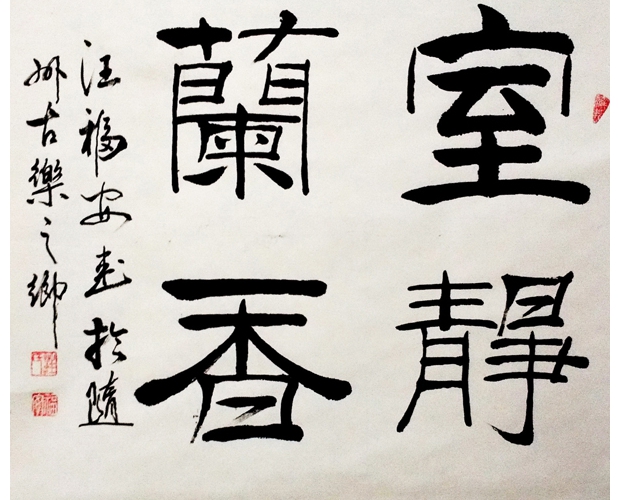 室静
蘭香
汪福安书於隨
州古樂之鄉